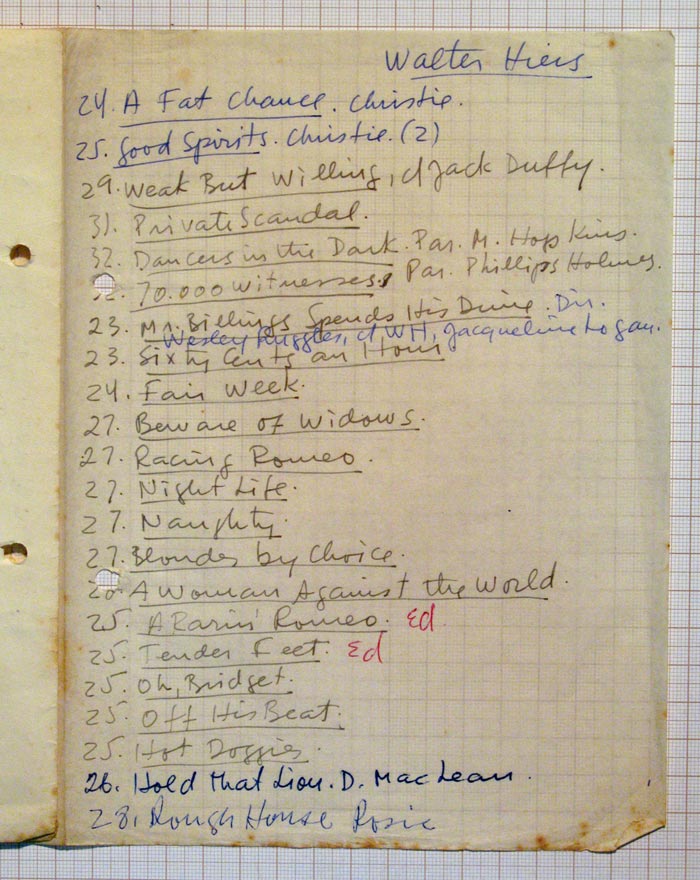 Walter Hiers
24. A Fat Chance. Christie.
25. Good Spirits. Christie. (2)
29. Weak But Willing, d Jack Duffy.
31. Private Scandal.
32. Dancers in the Dark. Par. M. Hopkins.
32. 70.000 Witnesses. Par. Phillips Holmes.
23. Mr. Billings Spends His Dime. Dir.
Wesley Ruggles, d WH, Jacqueline Logan.
23. Sixty Cents an Hour
24. Fair Week.
27. Beware of Widows.
27. Racing Romeo.
27. Night Life.
27. Naughty.
27. Blondes by Choice.
A Woman Against the World.
25. A Rarin' Romeo. Ed
25. Tender Feet. Ed
25. Oh, Bridget.
25. Off His Beat.
25. Hot Doggies.
26. Hold that Lion. D. MacLean.
28. Rough House Rosie